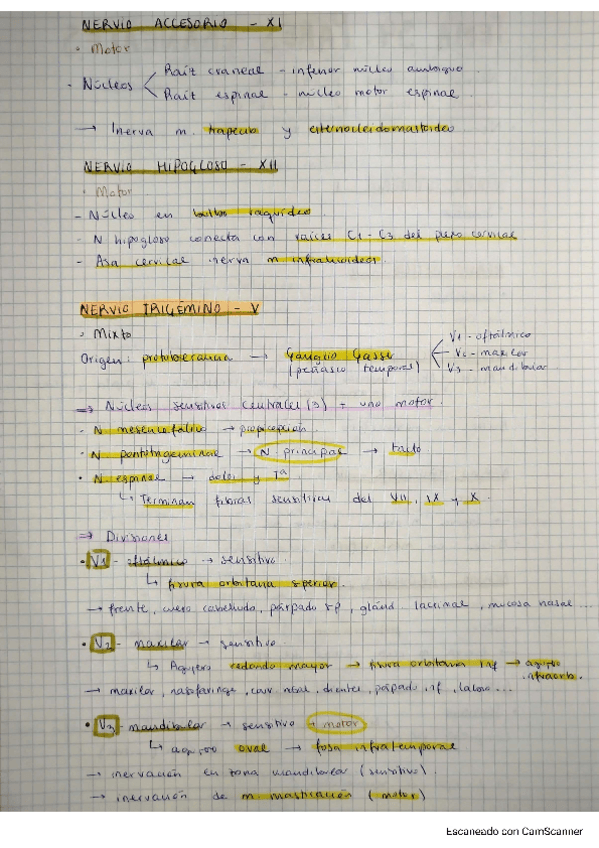 NERVIO ACCESORIO - XI
• Motor
- Núcleos
Raíz craneal - inferior núcleo ambiguo
Raíz espinal - núcleo motor espinal
→ Inerva m. trapecio y esternocleidomastoideo
NERVIO HIPOGLOSO - XII
• Motor
- Núcleo en bulbo raquídeo
- N hipogloso conecta con raíces C1 - C3 del plexo cervical
- Asa cervical inerva m infrahioideos
NERVIO TRIGÉMINO - V
• Mixto
Origen: protuberancia → Ganglio Gasser
(peñasco temporal)
V1 - oftálmico
V2 - maxilar
V3 - mandibular
⇒ Núcleos sensitivos centrales (3) + uno motor.
• N mesencefálico → propiocepción.
• N pontotrigeminal → N principal → tacto
• N espinal → dolor y Tª
↳ Terminan fibras sensitivas del VII, IX y X.
⇒ Divisiones
• V1 - oftálmico → sensitivo
↳ fisura orbitaria superior.
→ frente, cuero cabelludo, párpado sp, gland. lacrimal, mucosa nasal ...
• V2 - maxilar → sensitivo
↳ Agujero redondo mayor → fisura orbitaria inf → agujero infraorb.
→ maxilar, nasofaringe, cav. nasal, dientes, párpado inf, labio ...
• V3 - mandibular → sensitivo + motor
↳ agujero oval → fosa infratemporal
→ inervación en zona mandibular (sensitivo).
→ inervación de m masticación (motor)
Escaneado con CamScanner